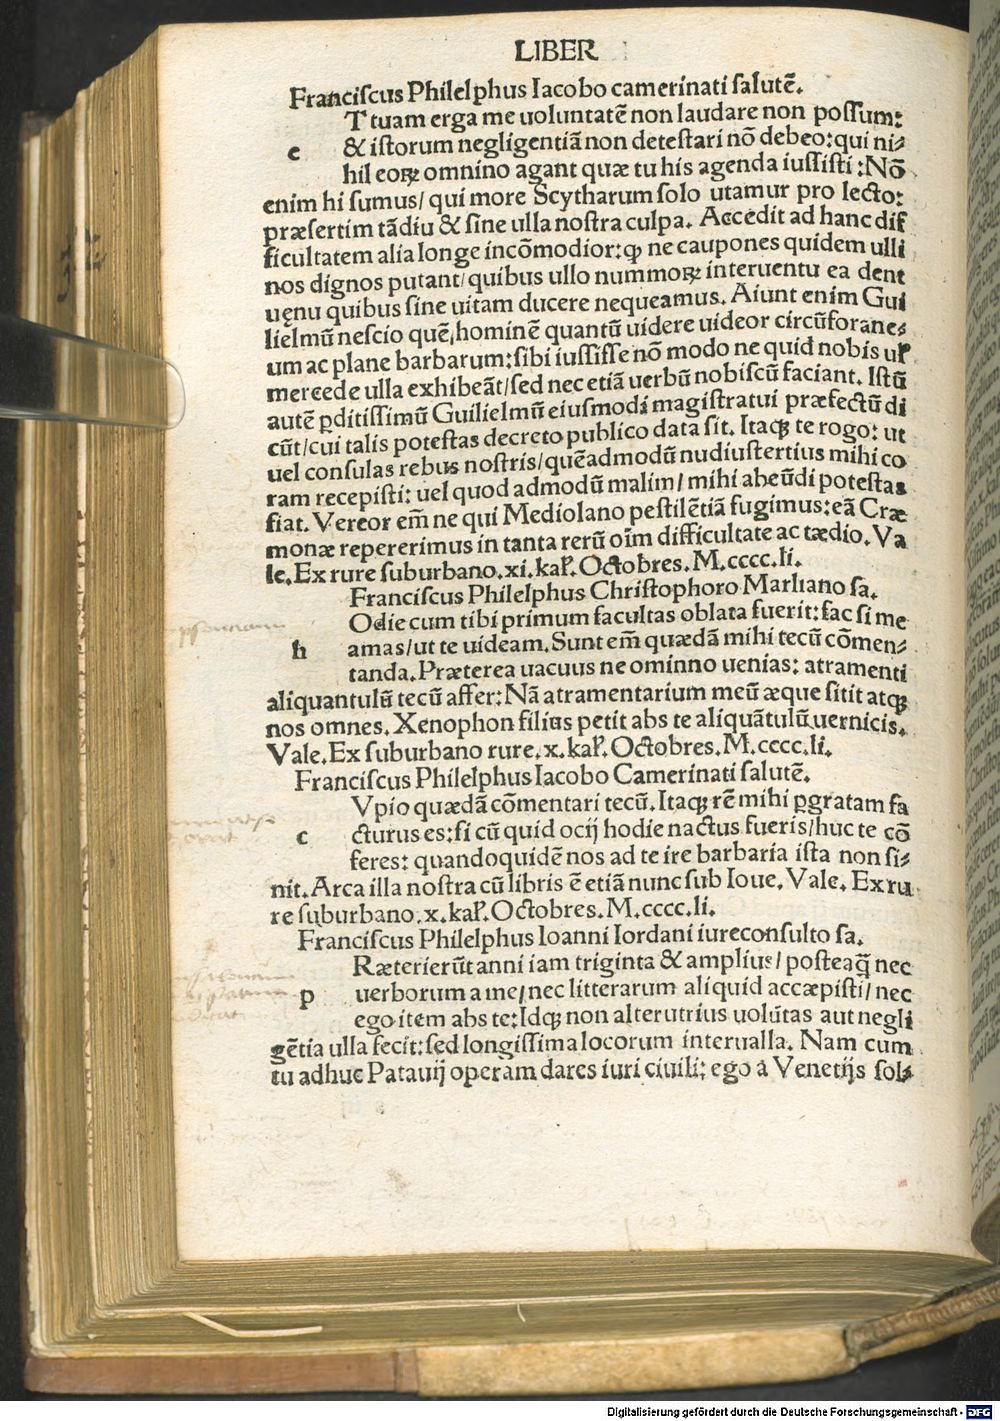 LIBER
Franciſcus Philelphus Iacobo camerinati ſalutē.
T tuam erga me uoluntatē non laudare non poſſum:
e & iſtorum negligentiā non deteſtari nō debeo: qui ni-
hil eoꝝ omnino agant quæ tu his agenda iuſſiſti: Nō
enim hi ſumus/ qui more Scytharum ſolo utamur pro lecto:
præſertim tādiu & ſine ulla noſtra culpa. Accedit ad hanc dif
ficultatem alia longe incōmodior: ꝙ ne caupones quidem ulli
nos dignos putant/ quibus ullo nummoꝝ interuentu ea dent
uęnu quibus ſine uitam ducere nequeamus. Aiunt enim Gui
lielmū neſcio quē, hominē quantū uidere uideor circūforane-
um ac plane barbarum: ſibi iuſſiſſe nō modo ne quid nobis ul̕
mercede ulla exhibeāt/ ſed nec etiā uerbū nobiſcū faciant. Iſtū
autē ꝑditiſſimū Guilielmū eiuſmodi magiſtratui præfectū di
cūt/ cui talis poteſtas decreto publico data ſit. Itaqꝫ te rogo: ut
uel conſulas rebus noſtris/ quēadmodū nudiuſtertius mihi co
ram recepiſti: uel quod admodū malim/ mihi abeūdi poteſtas
fiat. Vereor em̄ ne qui Mediolano peſtilētiā fugimus: eā Cræ
monæ repererimus in tanta rerū oīm difficultate ac tædio. Va
le. Ex rure ſuburbano. xi. kal̕. Octobres. M. cccc. li.
Franciſcus Philelphus Chriſtophoro Marliano ſa.
Odie cum tibi primum facultas oblata fuerit: fac ſi me
h amas/ ut te uideam. Sunt em̄ quædā mihi tecū cōmen-
tanda. Præterea uacuus ne ominno uenias: atramenti
aliquantulū tecū affer: Nā atramentarium meū æque ſitit atqꝫ
nos omnes. Xenophon filius petit abs te aliquātulū uernicis.
Vale. Ex ſuburbano rure. x. kal̕. Octobres. M. cccc. li.
Franciſcus Philelphus Iacobo Camerinati ſalutē.
Vpio quædā cōmentari tecū. Itaqꝫ rē mihi ꝑgratam fa
c cturus es: ſi cū quid ocij hodie nactus fueris/ huc te cō
feres: quandoquidē nos ad te ire barbaria iſta non ſi-
nit. Arca illa noſtra cū libris ē etiā nunc ſub Ioue. Vale. Ex ru
re ſuburbano. x. kal̕. Octobres. M. cccc. li.
Franciſcus Philelphus Ioanni Iordani iureconſulto ſa.
Ræterierūt anni iam triginta & amplius/ poſteaq̄ nec
p uerborum a me/ nec litterarum aliquid accæpiſti/ nec
ego item abs te: Idqꝫ non alterutrius uolūtas aut negli
gētia ulla fecit: ſed longiſſima locorum interualla. Nam cum
tu adhuc Patauij operam dares iuri ciuili: ego a Venetijs ſol-
Digitalisierung gefördert durch die Deutsche Forschungsgemeinschaft - DFG